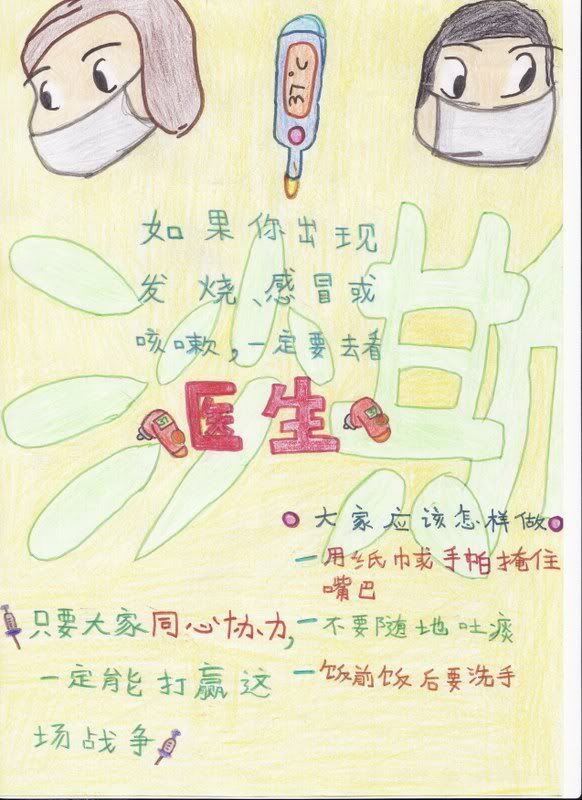 37°C
如果你出现
发烧、感冒或
咳嗽,一定要去看
医生
沙斯
大家应该怎样做
一用纸巾或手帕掩住
嘴巴
一不要随地吐痰
一饭前饭后要洗手
只要大家同心协力,
一定能打赢这
场战争